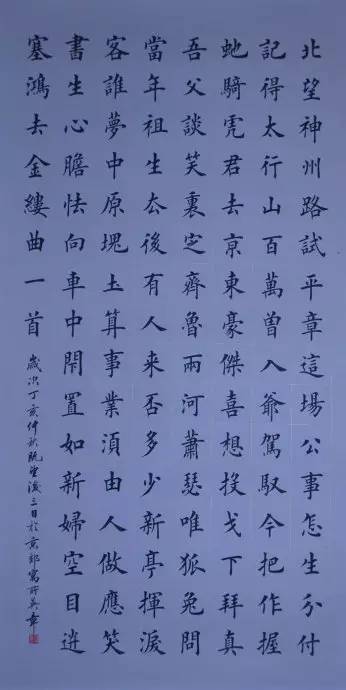 北望神州路試平章這場公事怎生分付
記得太行山百萬曽入爺駕馭今把作握
虵騎虎君去亰東豪傑喜想投戈下拜真
吾父談笑裏定齊魯兩河蕭瑟唯狐兔問
當年祖生去後有人来否多少新亭揮淚
客誰夢中原塊土算事業湏由人做應笑
書生心膽怯向車中閇置如新婦空目送
塞鴻去金縷曲一首
歲次丁亥仲秋既望後三日於京郊寓所